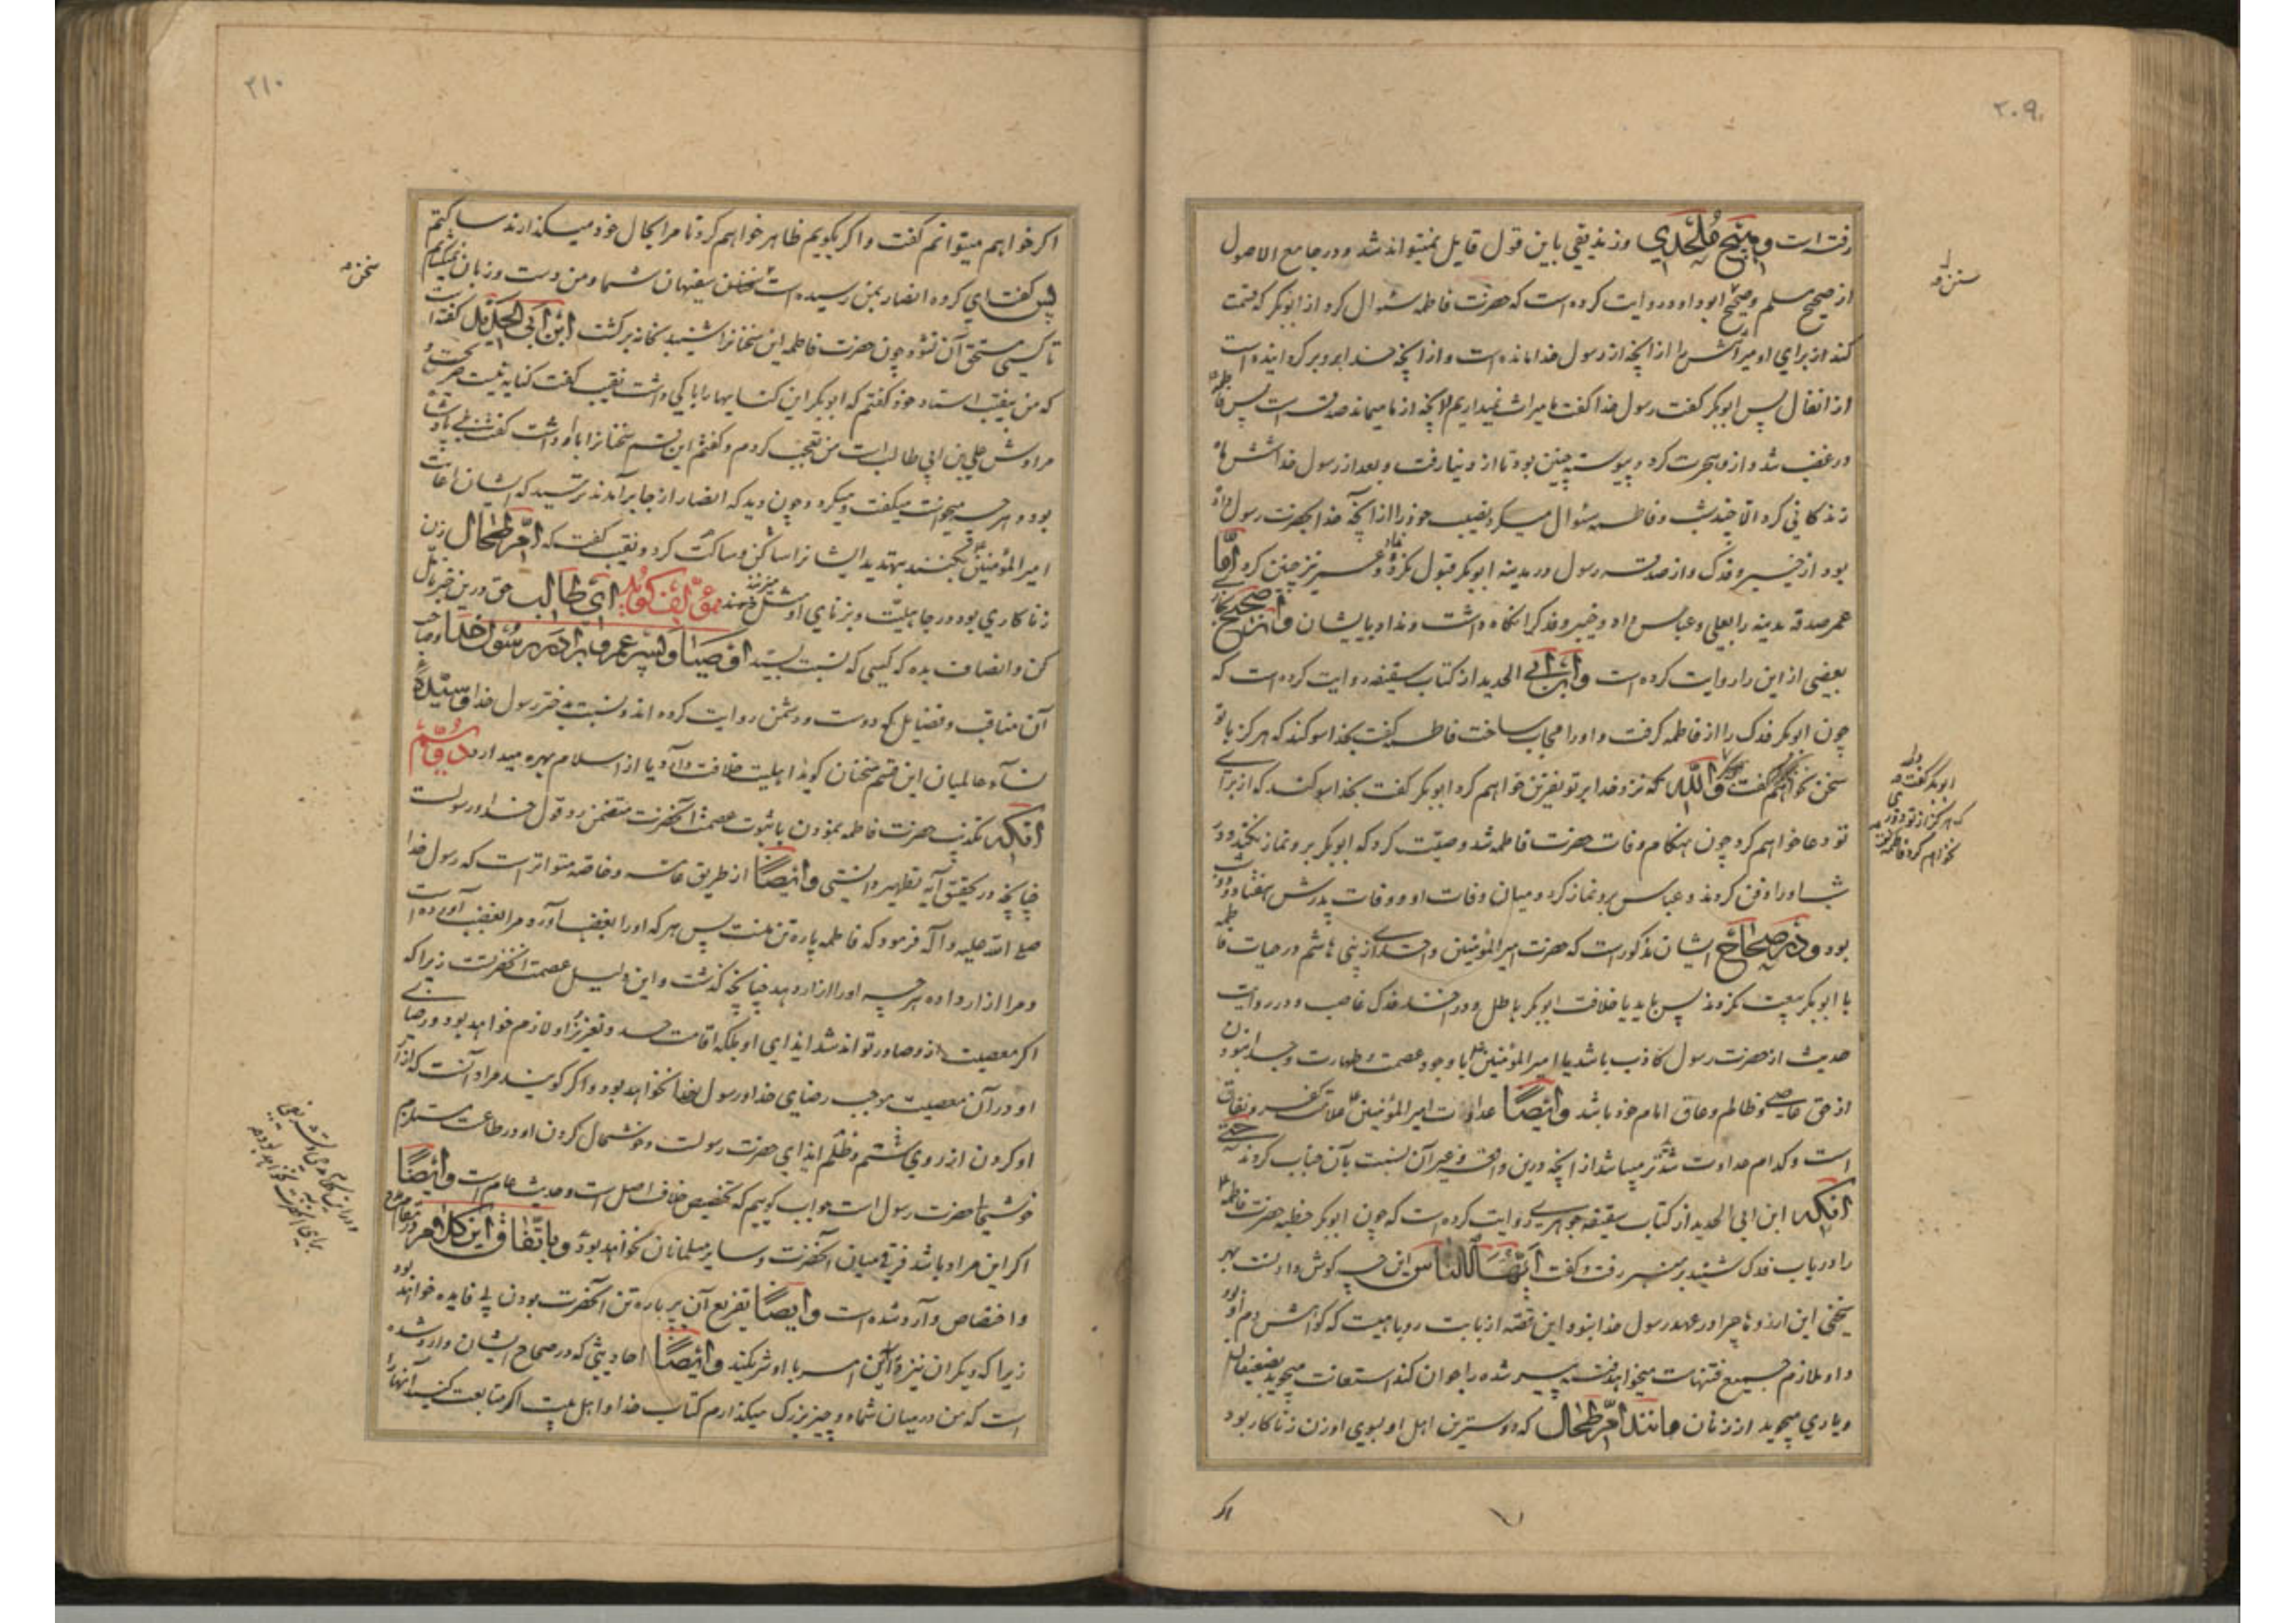 ۲۰۹
رفته است و هیچ ملحدی و زندیقی باین قول قایل نمیتواند شد و در جامع الاصول
از صحیح مسلم و صحیح ابوداود روایت کرده است که حضرت فاطمه سئوال کرد از ابوبکر که قسمت
کند از برای او میراثش را از آنچه از رسول خدا مانده است و از آنچه خدا برو برگردانیده است
از انفال پس ابوبکر گفت رسول خدا گفت ما میراث نمیداریم آنچه از ما میماند صدقه است پس فاطمه
در غضب شد و ازو هجرت کرد و پیوسته چنین بود تا از دنیا رفت و بعد از رسول خدا شش ماه
زندگانی کرد الا چند شب و فاطمه سئوال میکرد نصیب خود را از آنچه خدا بحضرت رسول داده
بود از خیبر و فدک و از صدقه رسول در مدینه ابوبکر قبول نکرد و عمر نیز چنین کرد اما
عمر صدقه مدینه را بعلی و عباس داد و خیبر و فدک را نگاه داشت و نداد بایشان و در صحیح
بعضی از این را روایت کرده است و ابن ابی الحدید از کتاب سقیفه روایت کرده است که
چون ابوبکر فدک را از فاطمه گرفت و او را مجاب ساخت فاطمه گفت بخدا سوکند که هرگز با تو
سخن نخواهم گفت والله که نزد خدا بر تو نفرین خواهم کرد ابوبکر گفت بخدا سوکند که از برای
تو دعا خواهم کرد چون هنگام وفات حضرت فاطمه شد وصیّت کرد که ابوبکر برو نماز نکند و در
شب او را دفن کردند و عباس برو نماز کرد و میان وفات او و وفات پدرش هفتاد و دو شب
بود و در صحاح ایشان مذکور است که حضرت امیر المؤمنین و احدی از بنی هاشم در حیات فاطمه
با ابوبکر بیعت نکردند پس باید یا خلافت ابوبکر باطل و در اخذ فدک غاصب و در روایت
حدیث از حضرت رسول کاذب باشد یا امیر المؤمنین با وجود عصمت و طهارت و جدا نبودن
از حق عاصی و ظالم و عاق امام خود باشد و ایضا عداوت امیر المؤمنین علامت کفر و نفاق
است و کدام عداوت شدیدتر میباشد از آنچه درین واقعه و غیر آن نسبت بآن جناب کردند حتی
آنکه ابن ابی الحدید از کتاب سقیفه جوهری روایت کرده است که چون ابوبکر خطبه حضرت فاطمه
را در باب فدک شنید بر منبر رفت و گفت ایها الناس این چه گوش دادنست بهر
سخنی این آرزوها چرا در عهد رسول خدا نبود این قصه از بابت روباهیست که گواهش دم او بود
و او ملازم جمیع فتنهاست میخواهد فتنه پیر شده را جوان کند استعانت میجوید بضعیفان
و یاری میجوید از زنان مانند ام طحال که دوسترین اهل او بسوی او زن زناکار بود
اگر
ابوبکر گفت
که هرگز از تو دوری
نخواهم کرد فاطمه گفت
۲۱۰
اگر خواهم میتوانم گفت و اگر بگویم ظاهر خواهم کرد تا مرا بحال خود میگذارند ساکتم
پس گفت ای گروه انصار بمن رسیده است سخن سفیهان شما و من دست و زبان نمیگشایم
تا کسی مستحق آن نشود چون حضرت فاطمه این سخنانرا شنید بخانه برگشت ابن ابی الحدید گفته است
که من بنقیب استاد خود گفتم که ابوبکر این کنایها را با کی داشت نقیب گفت کنایه نیست صریحست و
مرادش علی بن ابی طالب است من تعجب کردم و گفتم این قسم سخنانرا باو داشت گفت بلی پادشاه
بود و هر چه میخواست میگفت و میکرد و چون دید که انصار از جا برآمدند ترسید که ایشان اعانت
امیر المؤمنین بکنند بتهدید ایشانرا ساکن و ساکت کرد و نقیب گفت که ام طحال زن
زناکاری بود در جاهلیّت و بزنای او مثل میزنند مؤلف گوید ای طالب حق درین خبر تأمل
کن و انصاف بده که کسی که نسبت بسید اوصیا و پسر عم و برادر رسول خدا و صاحب
آن مناقب و فضایل که دوست و دشمن روایت کرده اند و نسبت بدختر رسول خدا و سیّدهٔ
نسآء عالمیان این قسم سخنان گوید اهلیت خلافت دارد و یا از اسلام بهره میدارد دوم
آنکه تکذیب حضرت فاطمه نمودن با ثبوت عصمت آنحضرت متضمن رد قول خدا و رسولست
چنانچه در تحقیق آیه تطهیر دانستی و ایضا از طریق عامه و خاصه متواتر است که رسول خدا
صلی الله علیه و آله فرمود که فاطمه پاره تن منست پس هر که او را بغضب آورد مرا بغضب آورده است
و مرا آزار داده هر چه او را آزار دهد چنانچه گذشت و این دلیل عصمت آنحضرتست زیرا که
اگر معصیت ازو صادر تواند شد ایذای او بلکه اقامت حد و تعزیز او لازم خواهد بود و رضای
او در آن معصیت موجب رضای خدا و رسول خدا نخواهد بود و اگر گویند مراد آنست که آزار
او کردن از روی ستم و ظلم ایذای حضرت رسولست و خوشحال کردن او در طاعت مستلزم
خوشحالی حضرت رسول است جواب گوییم که تخصیص خلاف اصل است و حدیث عام است و ایضا
اگر این مراد باشد فرقی میان آنحضرت و سایر مسلمانان نخواهد بود و باتفاق این کلام در مقام مدح
و اختصاص وارد شده است و ایضا تفریع آن بر پاره تن آنحضرت بودن بی فایده خواهد بود
زیرا که دیگران نیز در این امر با او شریکند و ایضا احادیثی که در صحاح ایشان وارد شده
است که من در میان شما دو چیز بزرگ میگذارم کتاب خدا و اهل بیت اگر متابعت کنید آنها را
سخن